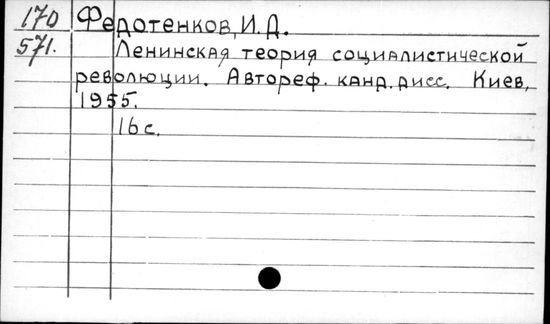 170 Федотенков, И. Д.
571. Ленинская теория социалистической
революции. Автореф. канд. дисс. Киев,
1955.
16 с.